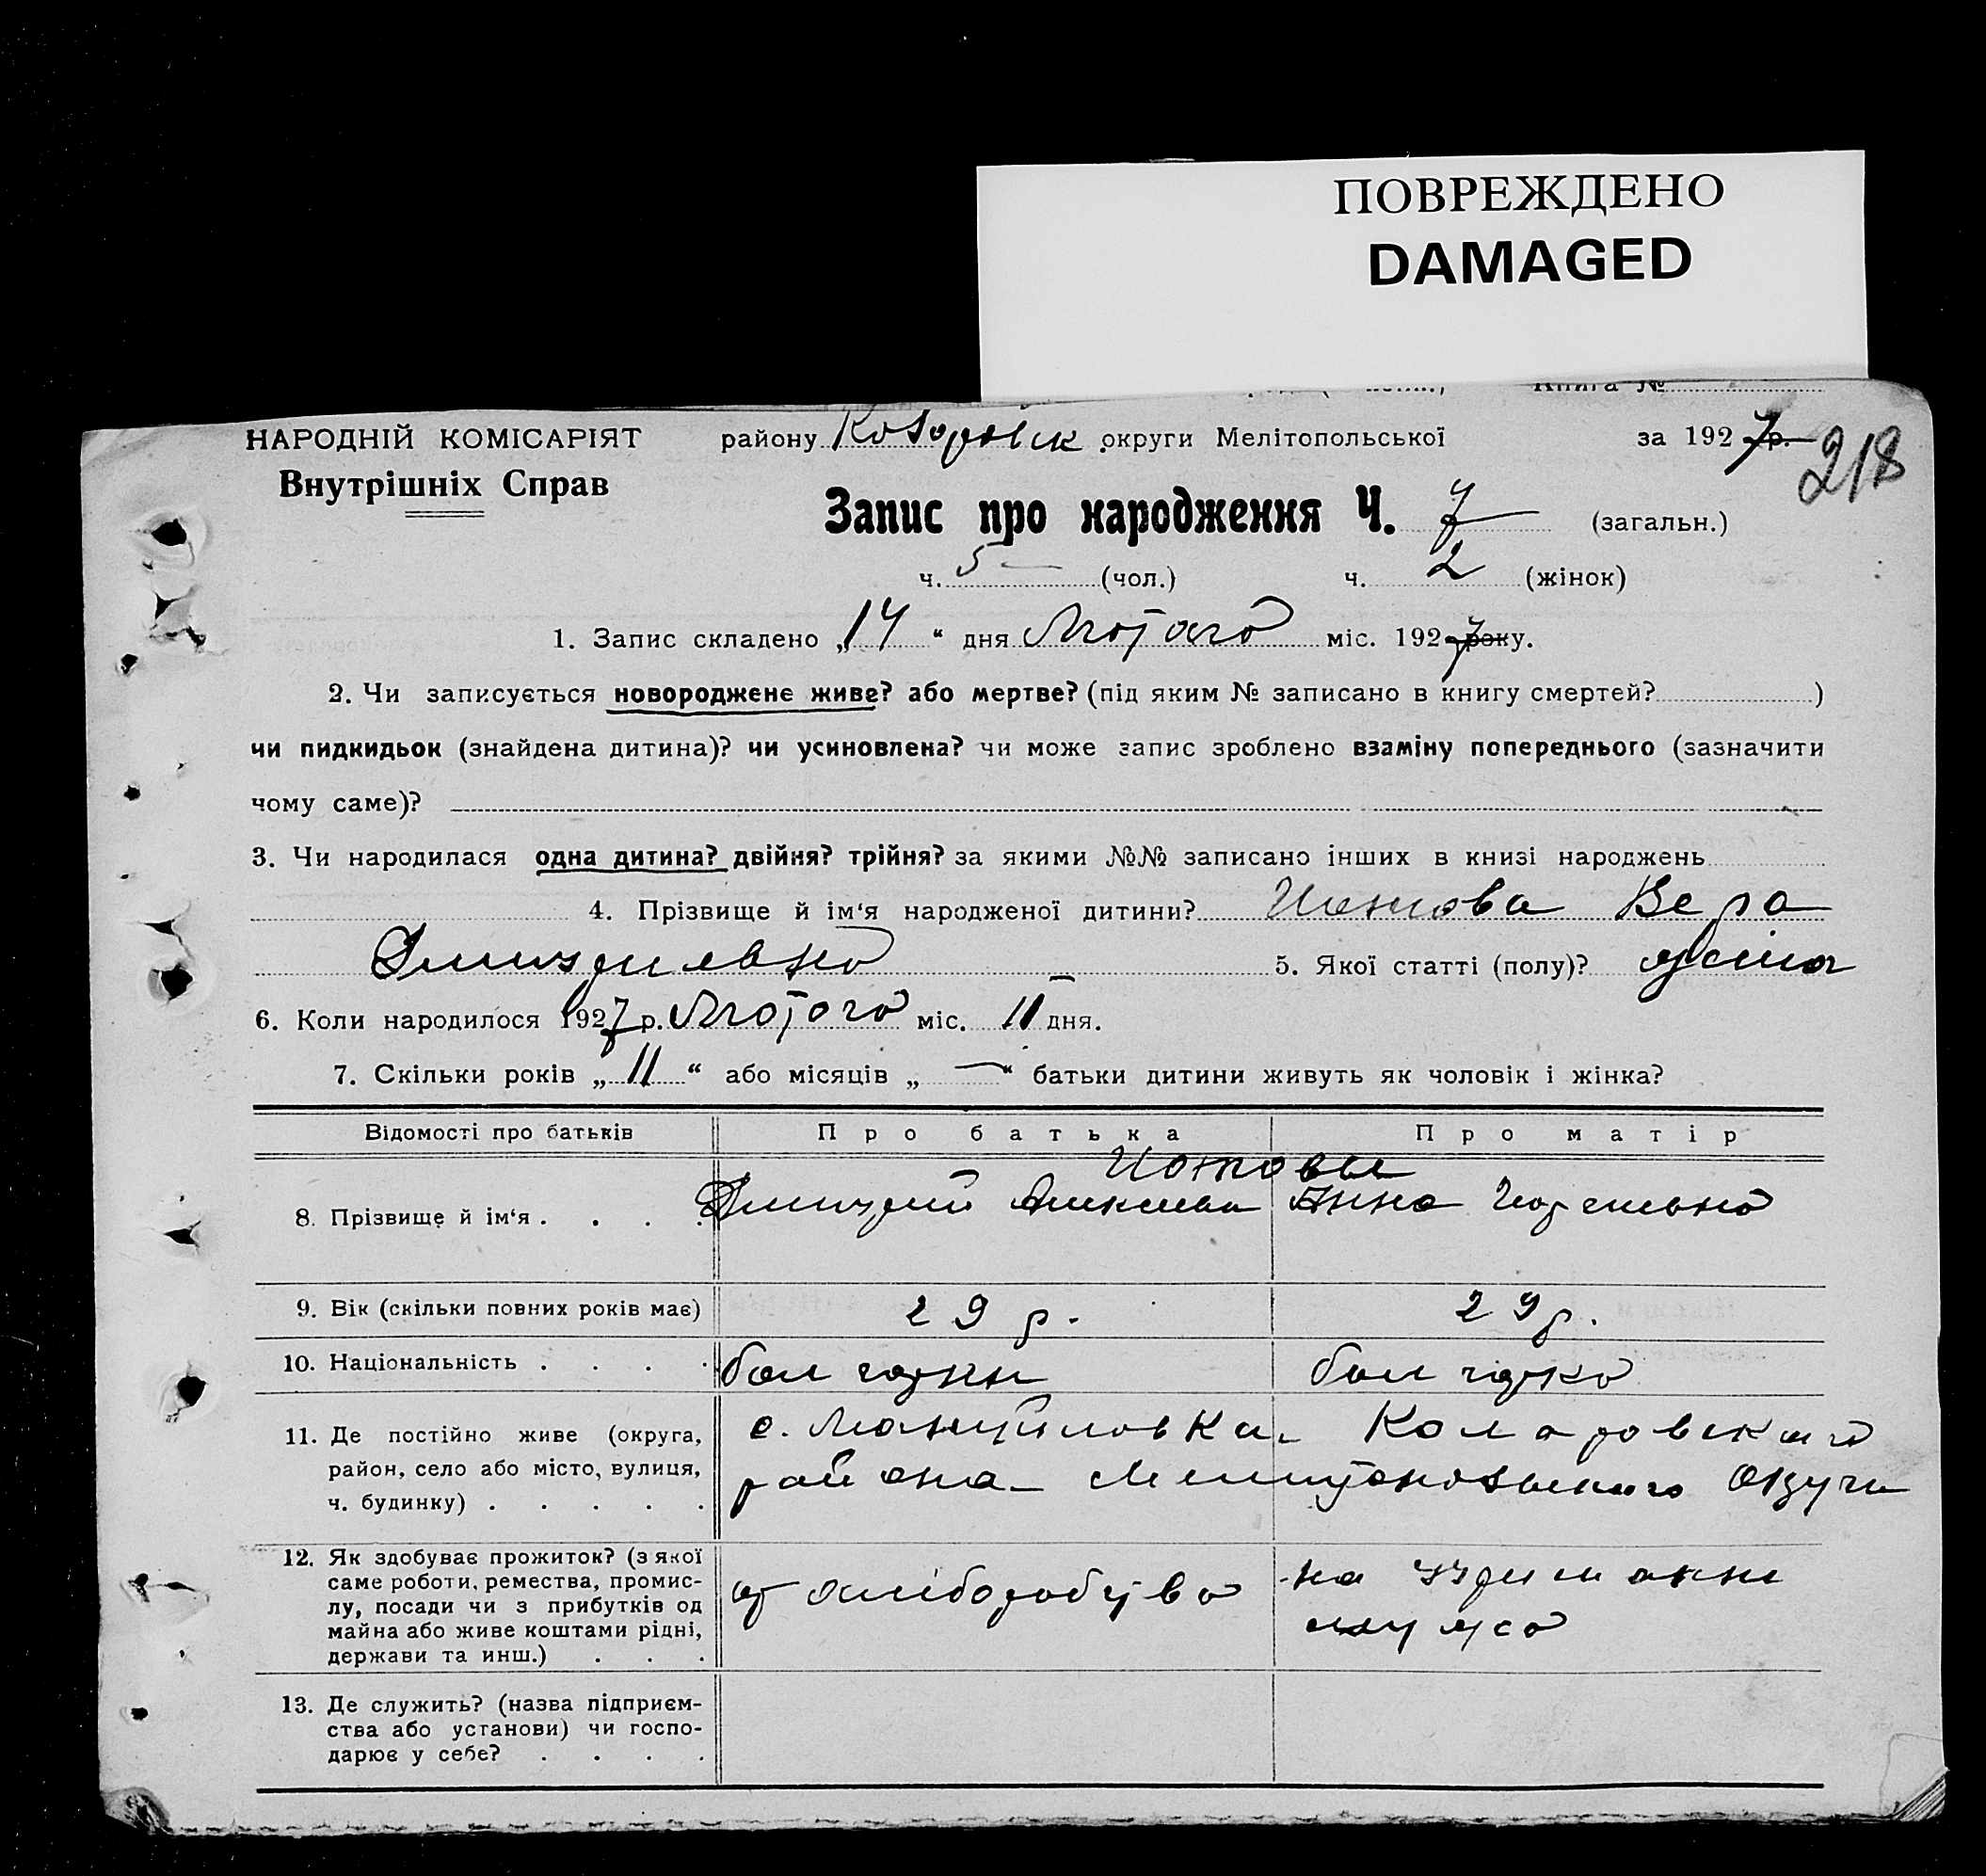 ПОВРЕЖДЕНО
DAMAGED
Книга №
НАРОДНІЙ КОМІСАРІЯТ
Внутрішніх Справ
району округи Мелітопольської за 1927 р.
218
Запис про народження Ч. 7 (загальн.)
ч. 5 (чол.) ч. 2 (жінок)
1. Запис складено „14“ дня Лютого міс. 1927 року.
2. Чи записується новороджене живе? або мертве? (під яким № записано в книгу смертей? )
чи пидкидьок (знайдена дитина)? чи усиновлена? чи може запис зроблено взаміну попереднього (зазначити
чому саме)?
3. Чи народилася одна дитина? двійня? трійня? за якими №№ записано інших в книзі народжень
4. Прізвище й ім‘я народженої дитини? Вера
5. Якої статті (полу)?
6. Коли народилося 1927 р. Лютого міс. 11 дня.
7. Скільки років „11“ або місяців „—“ батьки дитини живуть як чоловік і жінка?
Відомості про батьків Про батька Про матір
8. Прізвище й ім‘я Дмитрий Анна
9. Вік (скільки повних років має) 29 р. 29 р.
10. Національність болгарин болгарка
11. Де постійно живе (округа,
район, село або місто, вулиця,
ч. будинку)
с. Мануйловка Коларовского
района Округи
12. Як здобуває прожиток? (з якої
саме роботи, ремества, промис-
лу, посади чи з прибутків од
майна або живе коштами рідні,
держави та инш.)
хліборобство
на
13. Де служить? (назва підприєм-
ства або установи) чи госпо-
дарює у себе?